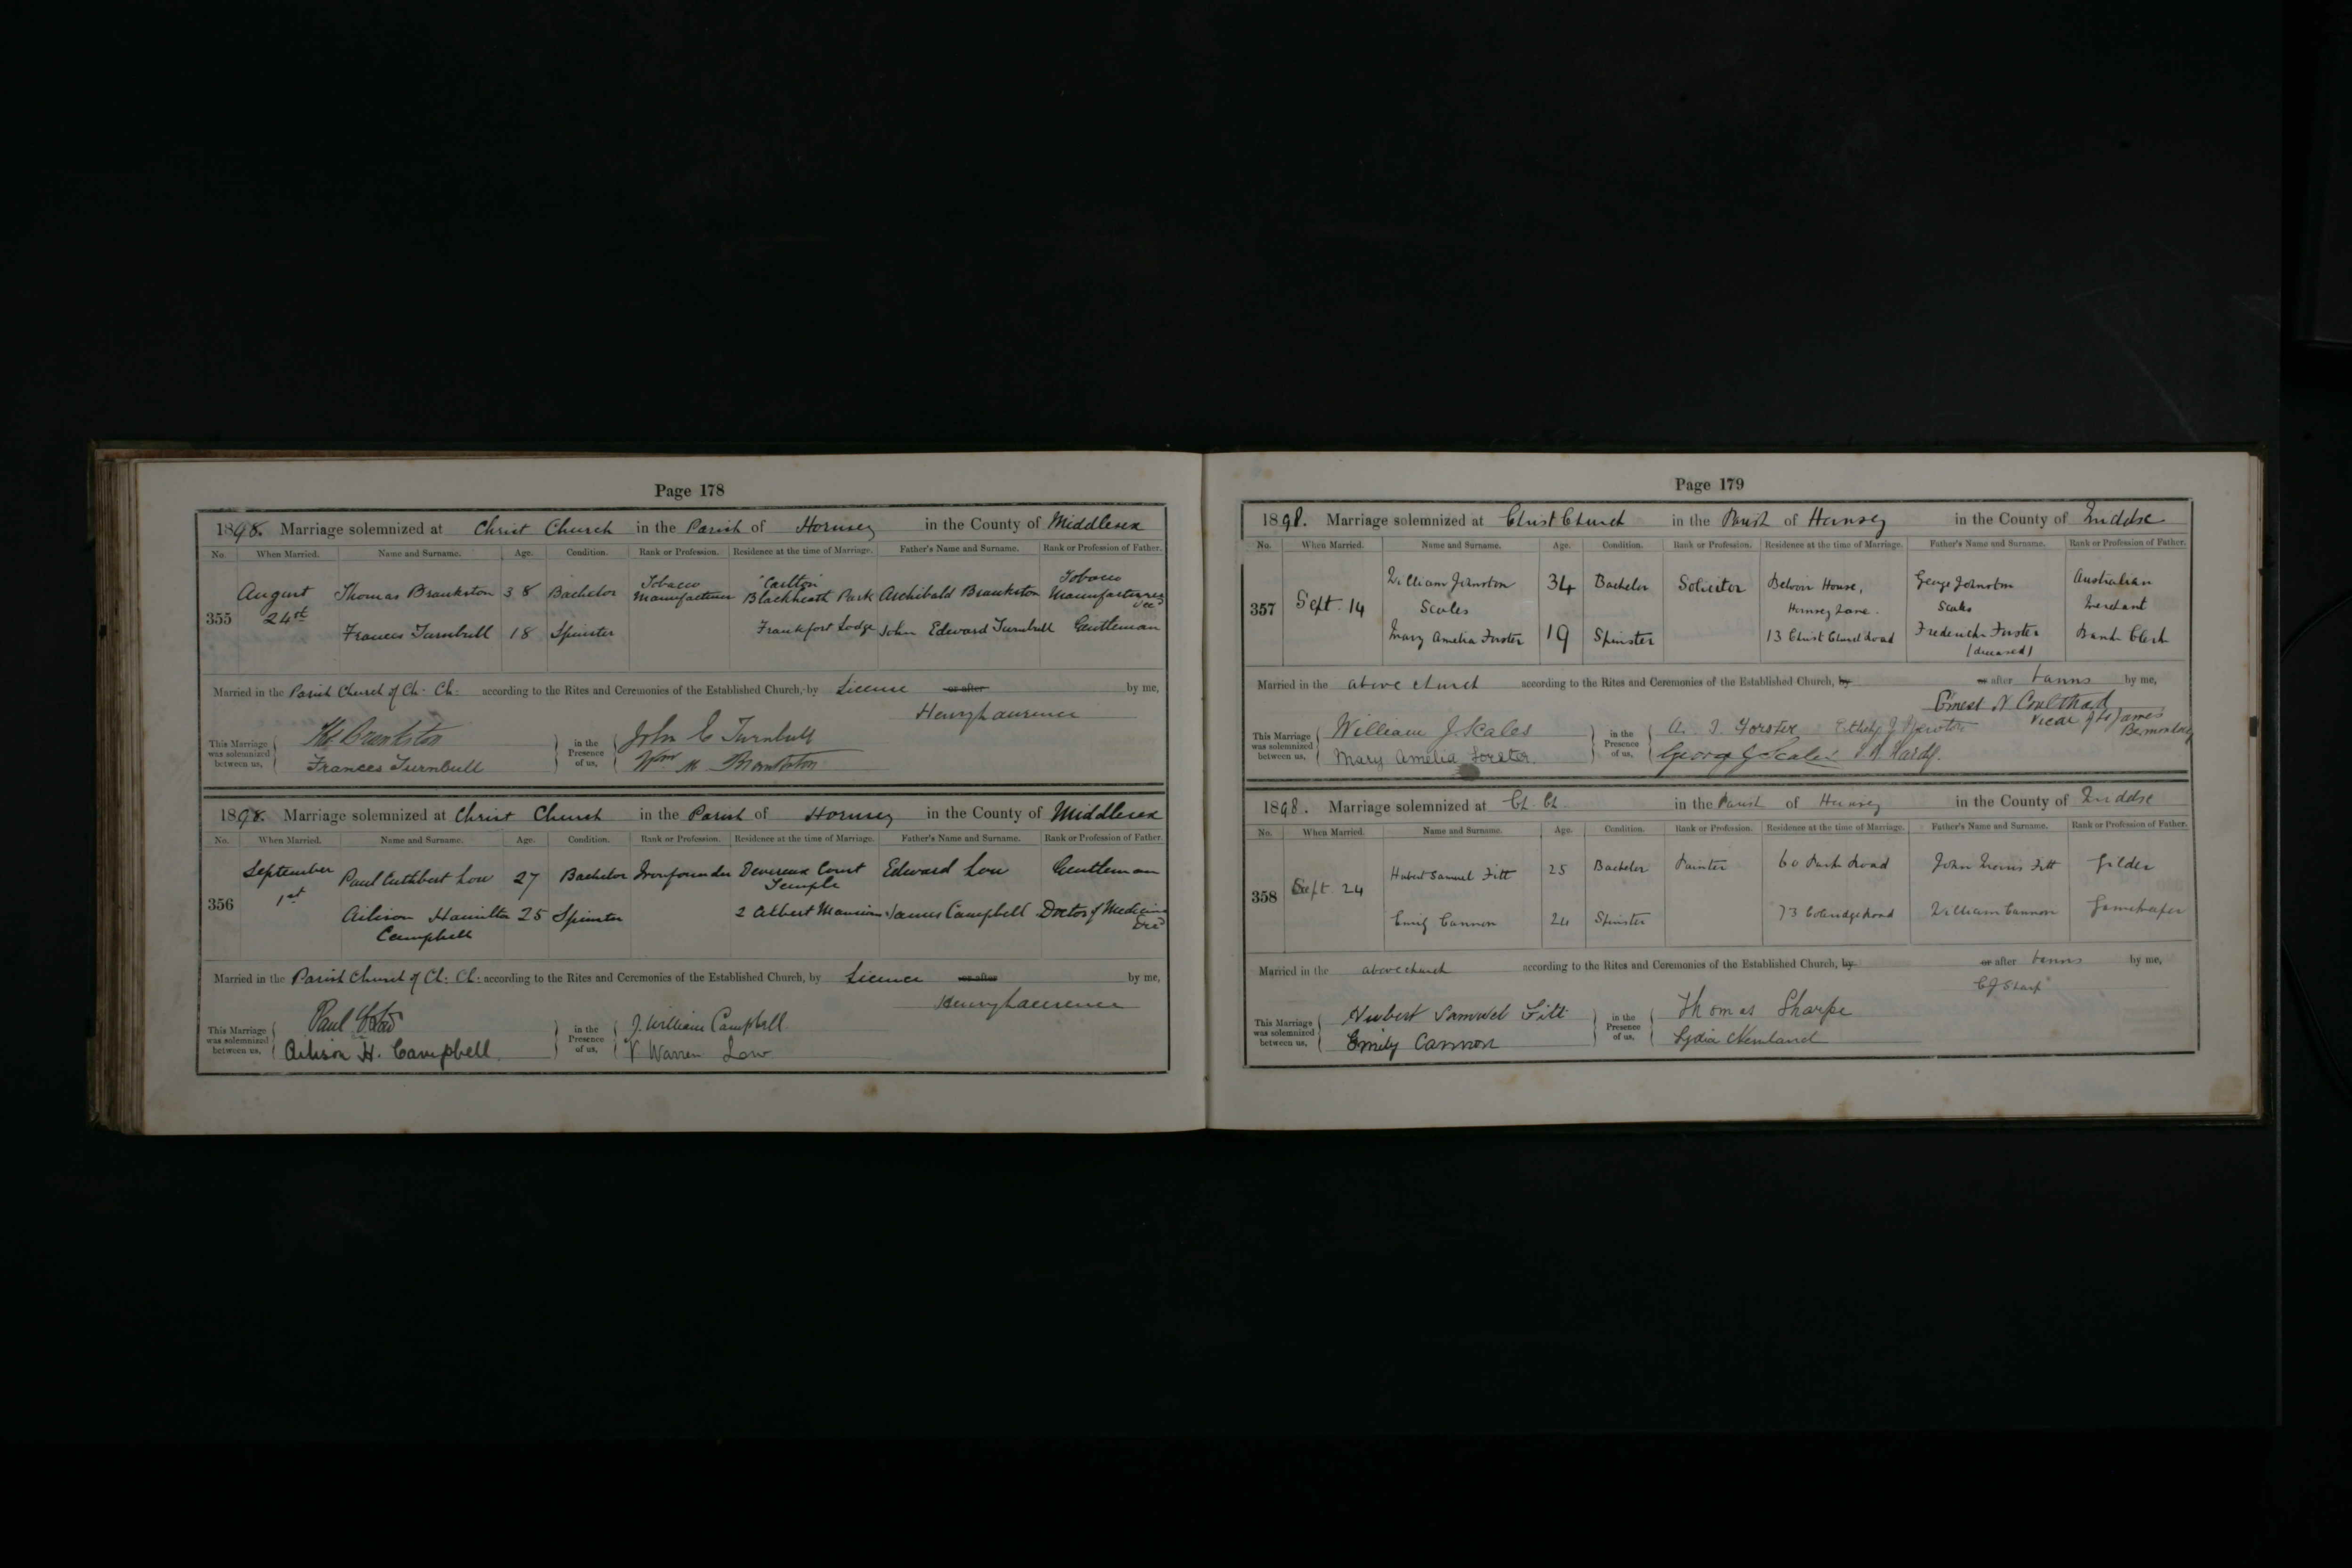 Page 178
1898. Marriage solemnized at Christ Church in the Parish of Hornsey in the County of Middlesex
No. When Married. Name and Surname. Age. Condition. Rank or Profession. Residence at the time of Marriage. Father's Name and Surname. Rank or Profession of Father.
355 August 24 Thomas Brankston 38 Bachelor Tobacco Manufacturer Carlton Blackheath Park Archibald Brankston Tobacco Manufacturer
Frances Turnbull 18 Spinster Frankfort Lodge John Edward Turnbull Gentleman
Married in the Parish Church of Ch: Ch: according to the Rites and Ceremonies of the Established Church, by License or after by me,
Henry Laurence
This Marriage was solemnized between us, Brankston in the Presence of us, John E Turnbull
Frances Turnbull Wm M Brankston
1898. Marriage solemnized at Christ Church in the Parish of Hornsey in the County of Middlesex
No. When Married. Name and Surname. Age. Condition. Rank or Profession. Residence at the time of Marriage. Father's Name and Surname. Rank or Profession of Father.
356 September 1st Paul Cuthbert Low 27 Bachelor Ironfounder Devereux Court Temple Edward Low Gentleman
Ailison Hamilton Campbell 25 Spinster 2 Albert Mansions James Campbell Doctor of Medicine
Married in the Parish Church of Ch: Ch: according to the Rites and Ceremonies of the Established Church, by Licence or after by me,
Henry Laurence
This Marriage was solemnized between us, Paul C Low in the Presence of us, J. William Campbell
Ailison H. Campbell V Warren Low
Page 179
1898. Marriage solemnized at Christ Church in the Parish of Hornsey in the County of Middsx
No. When Married. Name and Surname. Age. Condition. Rank or Profession. Residence at the time of Marriage. Father's Name and Surname. Rank or Profession of Father.
357 Sept. 14 William Johnston Scales 34 Bachelor Solicitor Belvoir House, Hornsey Lane. George Johnston Scales Australian Merchant
Mary Amelia Forster 19 Spinster 13 Christ Church Road Frederick Forster (deceased) Bank Clerk
Married in the above church according to the Rites and Ceremonies of the Established Church, by or after banns by me,
Ernest N Coulthard
Vicar of St James Bermondsey
This Marriage was solemnized between us, William J Scales in the Presence of us, A. J. Forster
Mary Amelia Forster. George J Scales Hardy.
1898. Marriage solemnized at Ch. Ch. in the Parish of Hornsey in the County of Middsx
No. When Married. Name and Surname. Age. Condition. Rank or Profession. Residence at the time of Marriage. Father's Name and Surname. Rank or Profession of Father.
358 Sept 24 Hubert Samuel Fitt 25 Bachelor Painter 60 Park Road John Fitt Gilder
Emily Cannon 24 Spinster 73 Coleridge Road William Cannon Gamekeeper
Married in the above church according to the Rites and Ceremonies of the Established Church, by or after banns by me,
C J Sharp
This Marriage was solemnized between us, Hubert Samuel Fitt in the Presence of us, Thomas Sharpe
Emily Cannon Lydia Newland